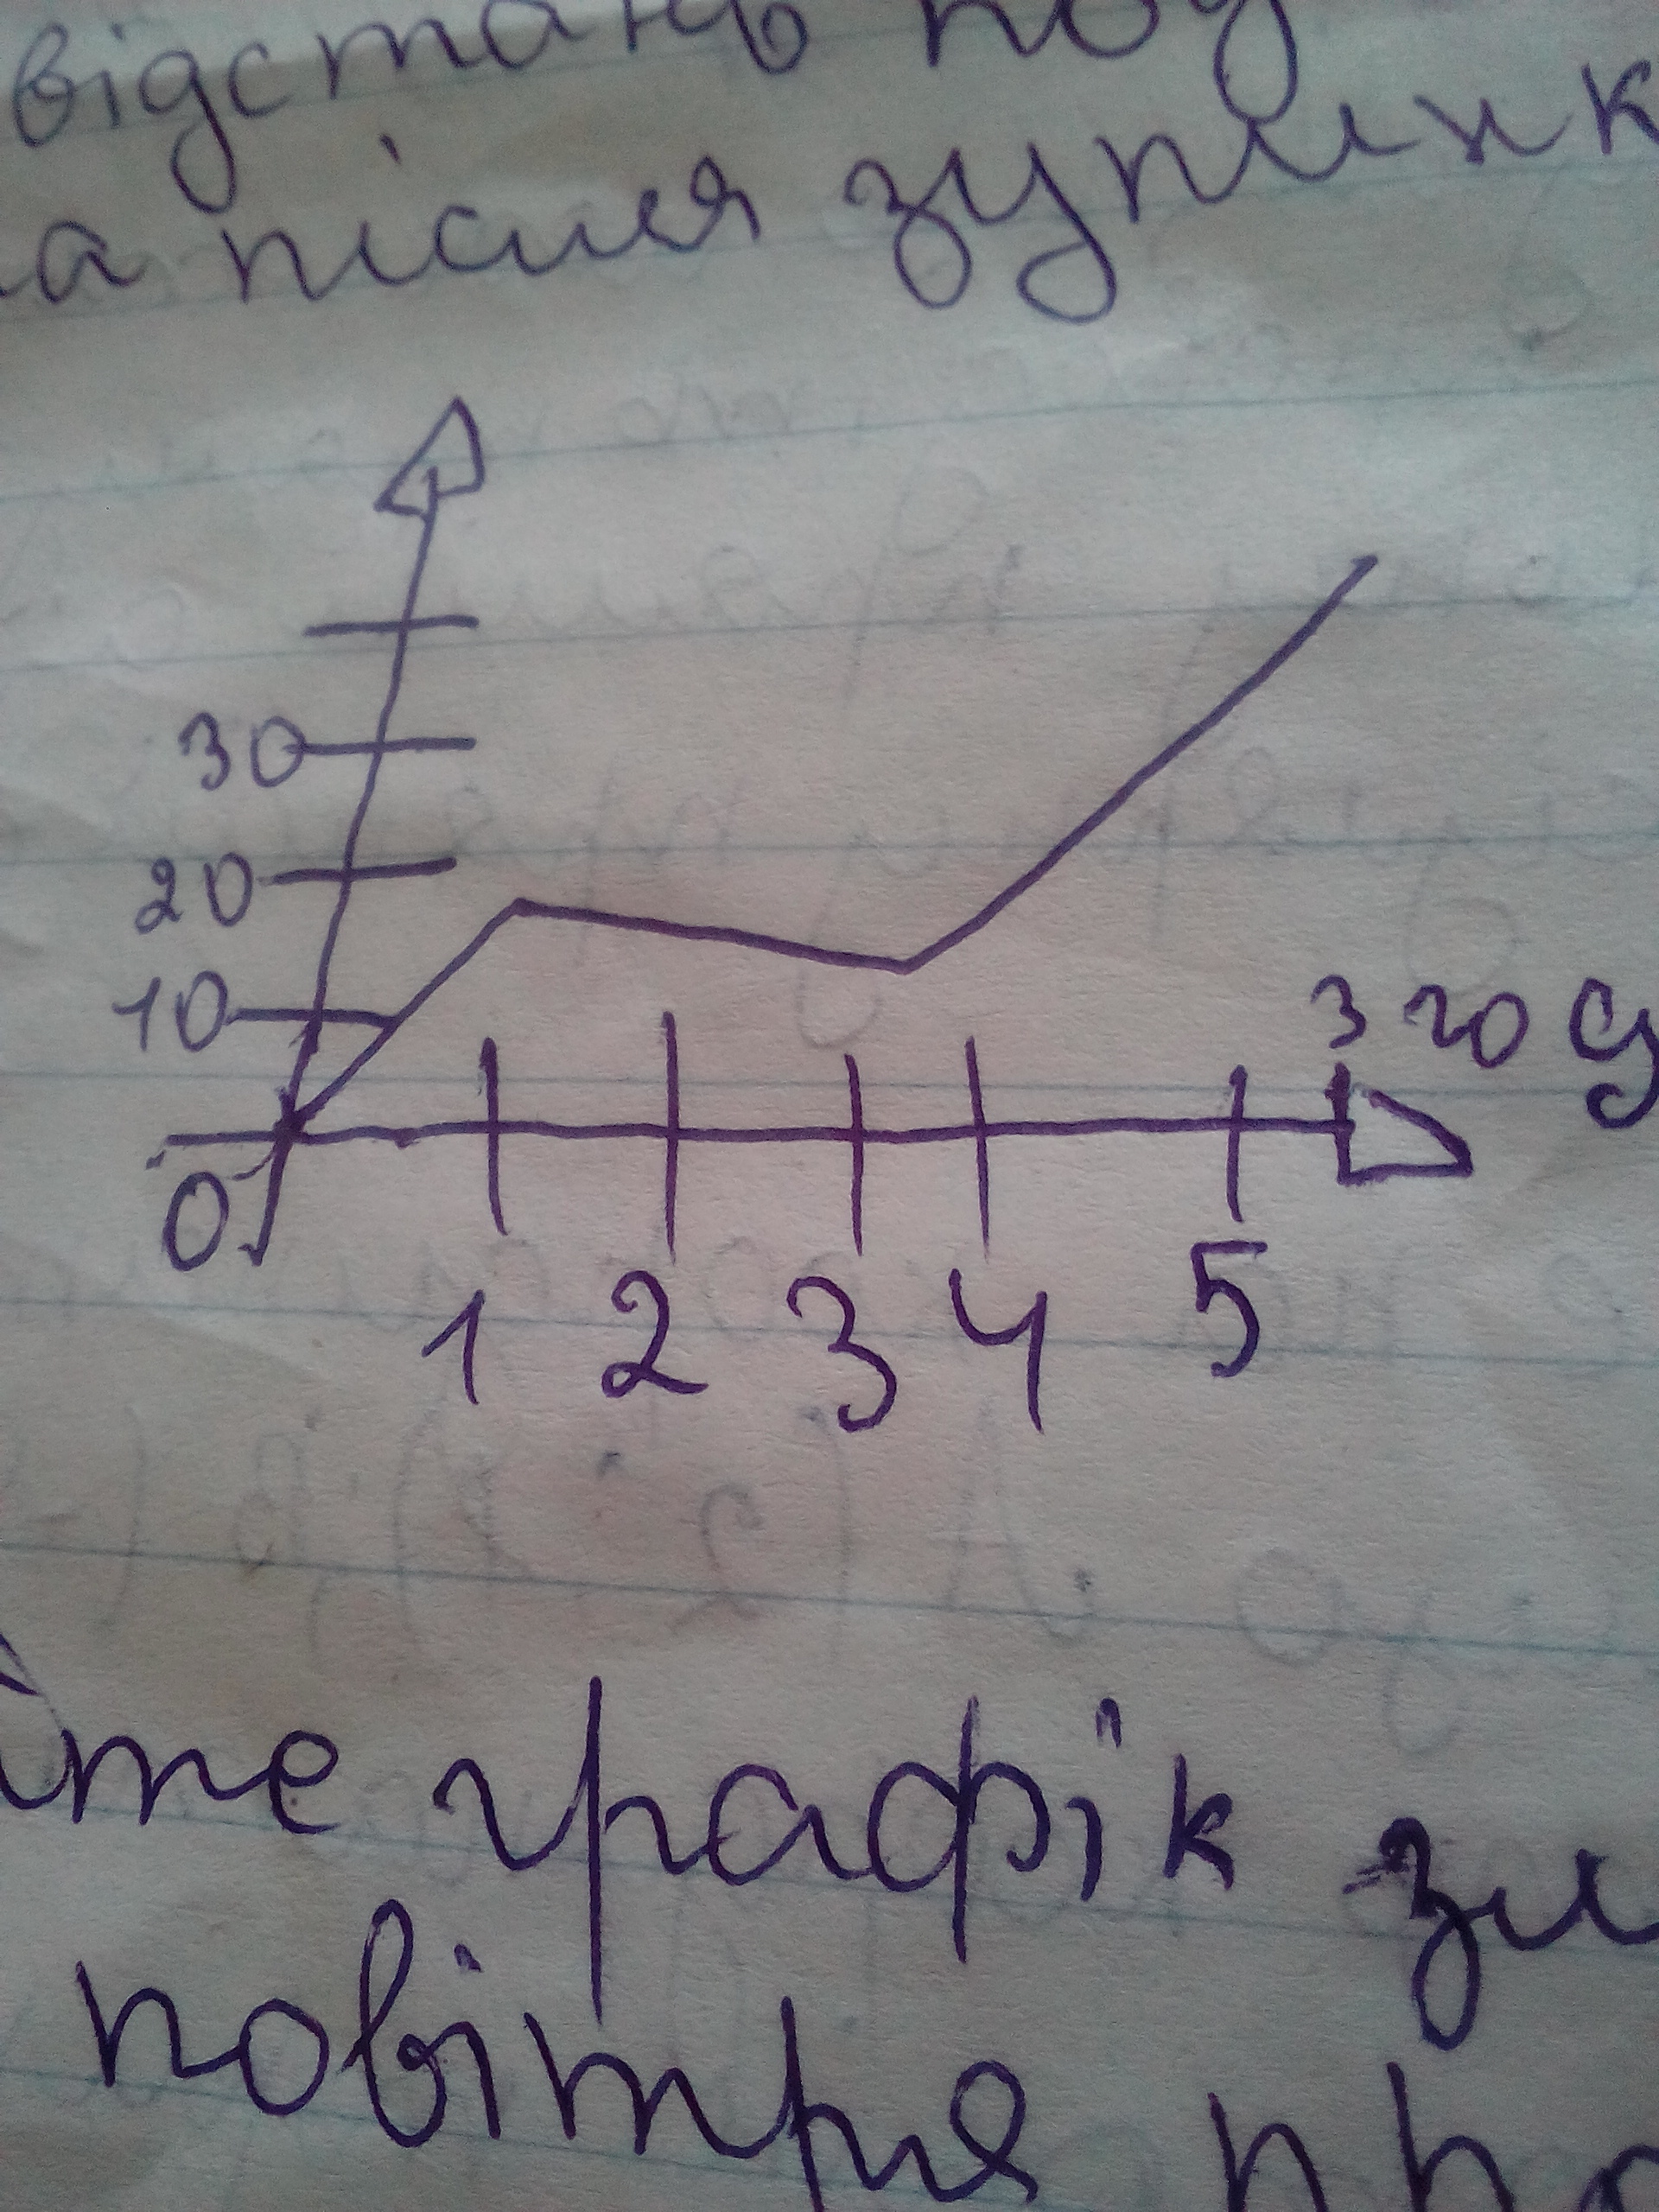 відстань
а після зупинк
30
20
10
з год
0
1 2 3 4 5
йте графік
повітря